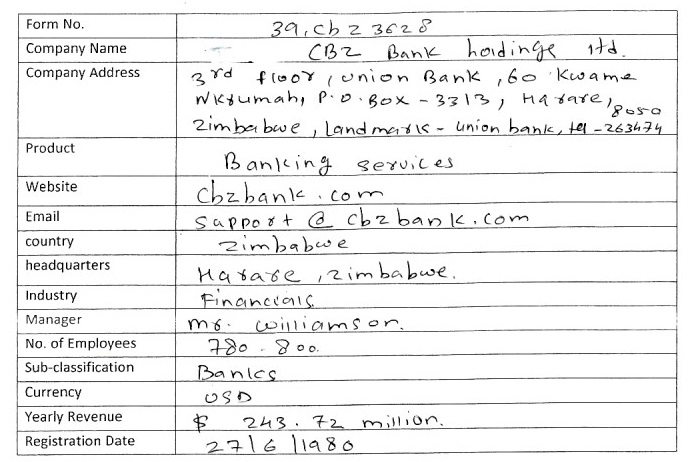 Form No. 39, Cbz 3628
Company Name CBZ Bank hoidinge ltd.
Company Address 3rd floor, union Bank, 60 Kwame
Nkrumah, P.O.Box - 3313, Harare, 8050
Zimbabwe, Landmark - union bank, tel - 263474
Product Banking services
Website Cbzbank.com
Email support@cbzbank.com
country Zimbabwe
headquarters Harare, Zimbabwe.
Industry Financials
Manager mr. williamson.
No. of Employees 780 - 800.
Sub-classification Banks
Currency USD
Yearly Revenue $ 243.72 million.
Registration Date 27/6/1980